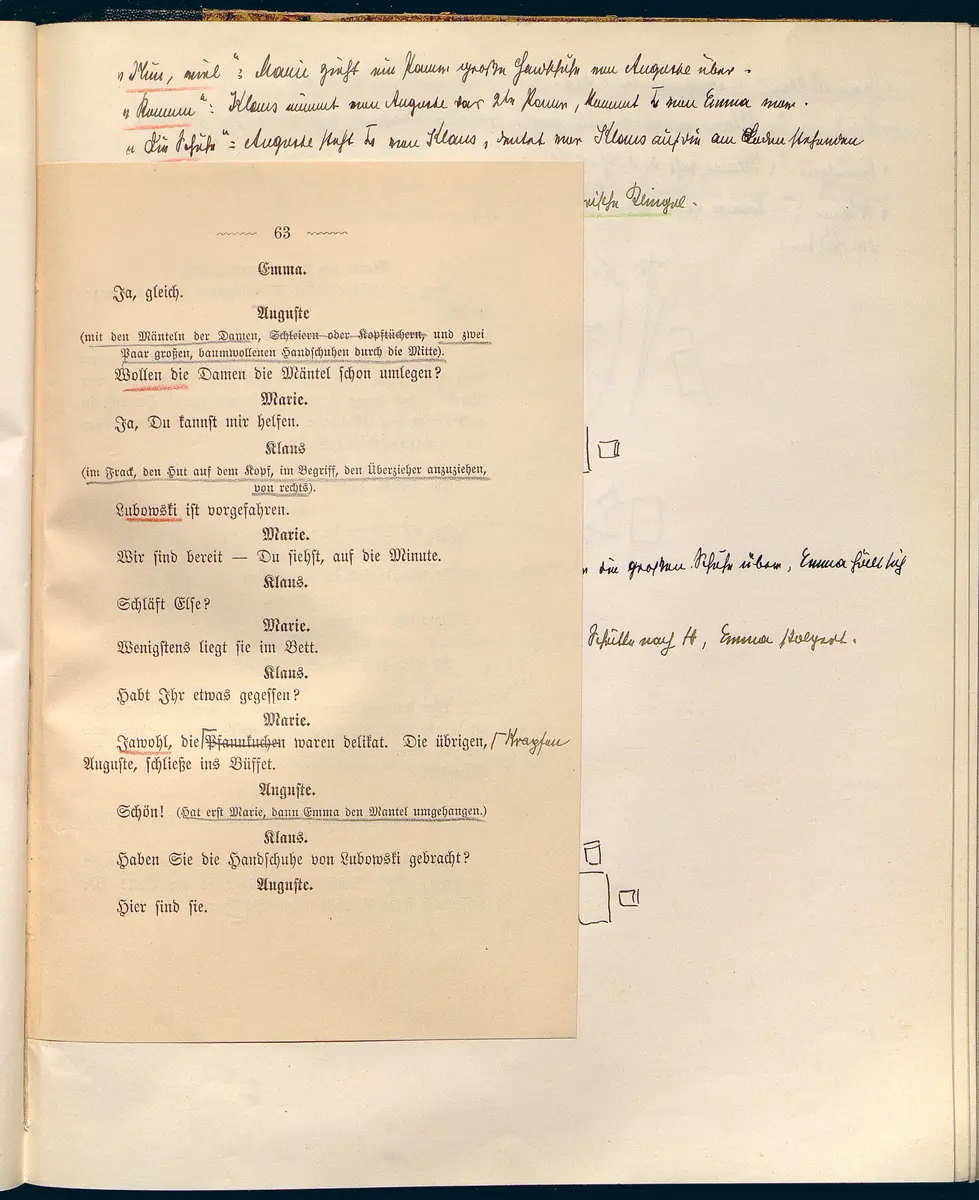 „Nun, weil“: Marie zieht ein Paar große Handschuhe von Auguste über.
„Komm“: Klaus nimmt von Auguste das 2te Paar, kommt von Emma
„Die Schuhe“: Auguste steht von Klaus, deutet vor Klaus auf die am Boden stehenden
Klingel.
63
Emma.
Ja, gleich.
Auguste
(mit den Mänteln der Damen, Schleiern oder Kopftüchern, und zwei
Paar großen, baumwollenen Handschuhen durch die Mitte).
Wollen die Damen die Mäntel schon umlegen?
Marie.
Ja, Du kannst mir helfen.
Klaus
(im Frack, den Hut auf dem Kopf, im Begriff, den Überzieher anzuziehen,
von rechts).
Lubowski ist vorgefahren.
Marie.
Wir sind bereit — Du siehst, auf die Minute.
Klaus.
Schläft Else?
Marie.
Wenigstens liegt sie im Bett.
die großen Schuhe über, Emma hüllt sich
Klaus.
Habt Ihr etwas gegessen?
nach H, Emma stolpert.
Marie.
Jawohl, die Pfannkuchen waren delikat. Die übrigen, Krapfen
Auguste, schließe ins Büffet.
Auguste.
Schön! (Hat erst Marie, dann Emma den Mantel umgehangen.)
Klaus.
Haben Sie die Handschuhe von Lubowski gebracht?
Auguste.
Hier sind sie.